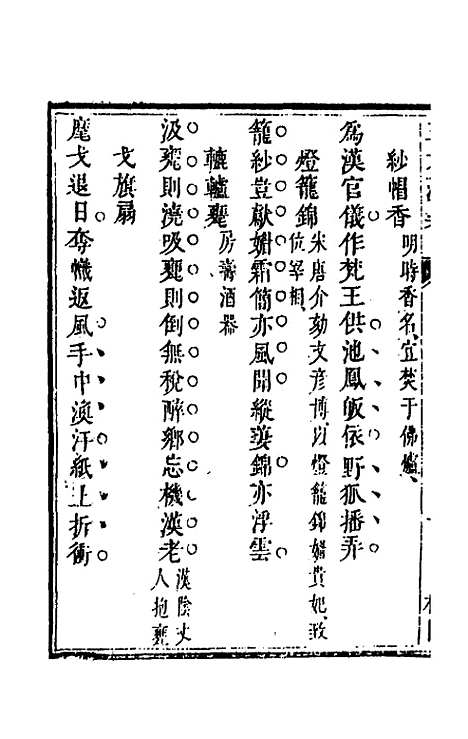 紗帽香 明時香名、宜焚于佛爐、
為漢官儀作梵王供池鳳皈依野狐播弄
燈籠錦 宋唐介劾文彥博、以燈籠錦媚貴妃、致位宰相、
籠紗豈獻媚霜簡亦風聞縱妻錦亦浮雲
轆轤甕 房壽酒器
汲甕則澆吸甕則倒無稅醉鄉忘機漢老 漢陰丈人抱甕
戈旗扇
麾戈退日奪幟返風手巾澳汗紙上折衝